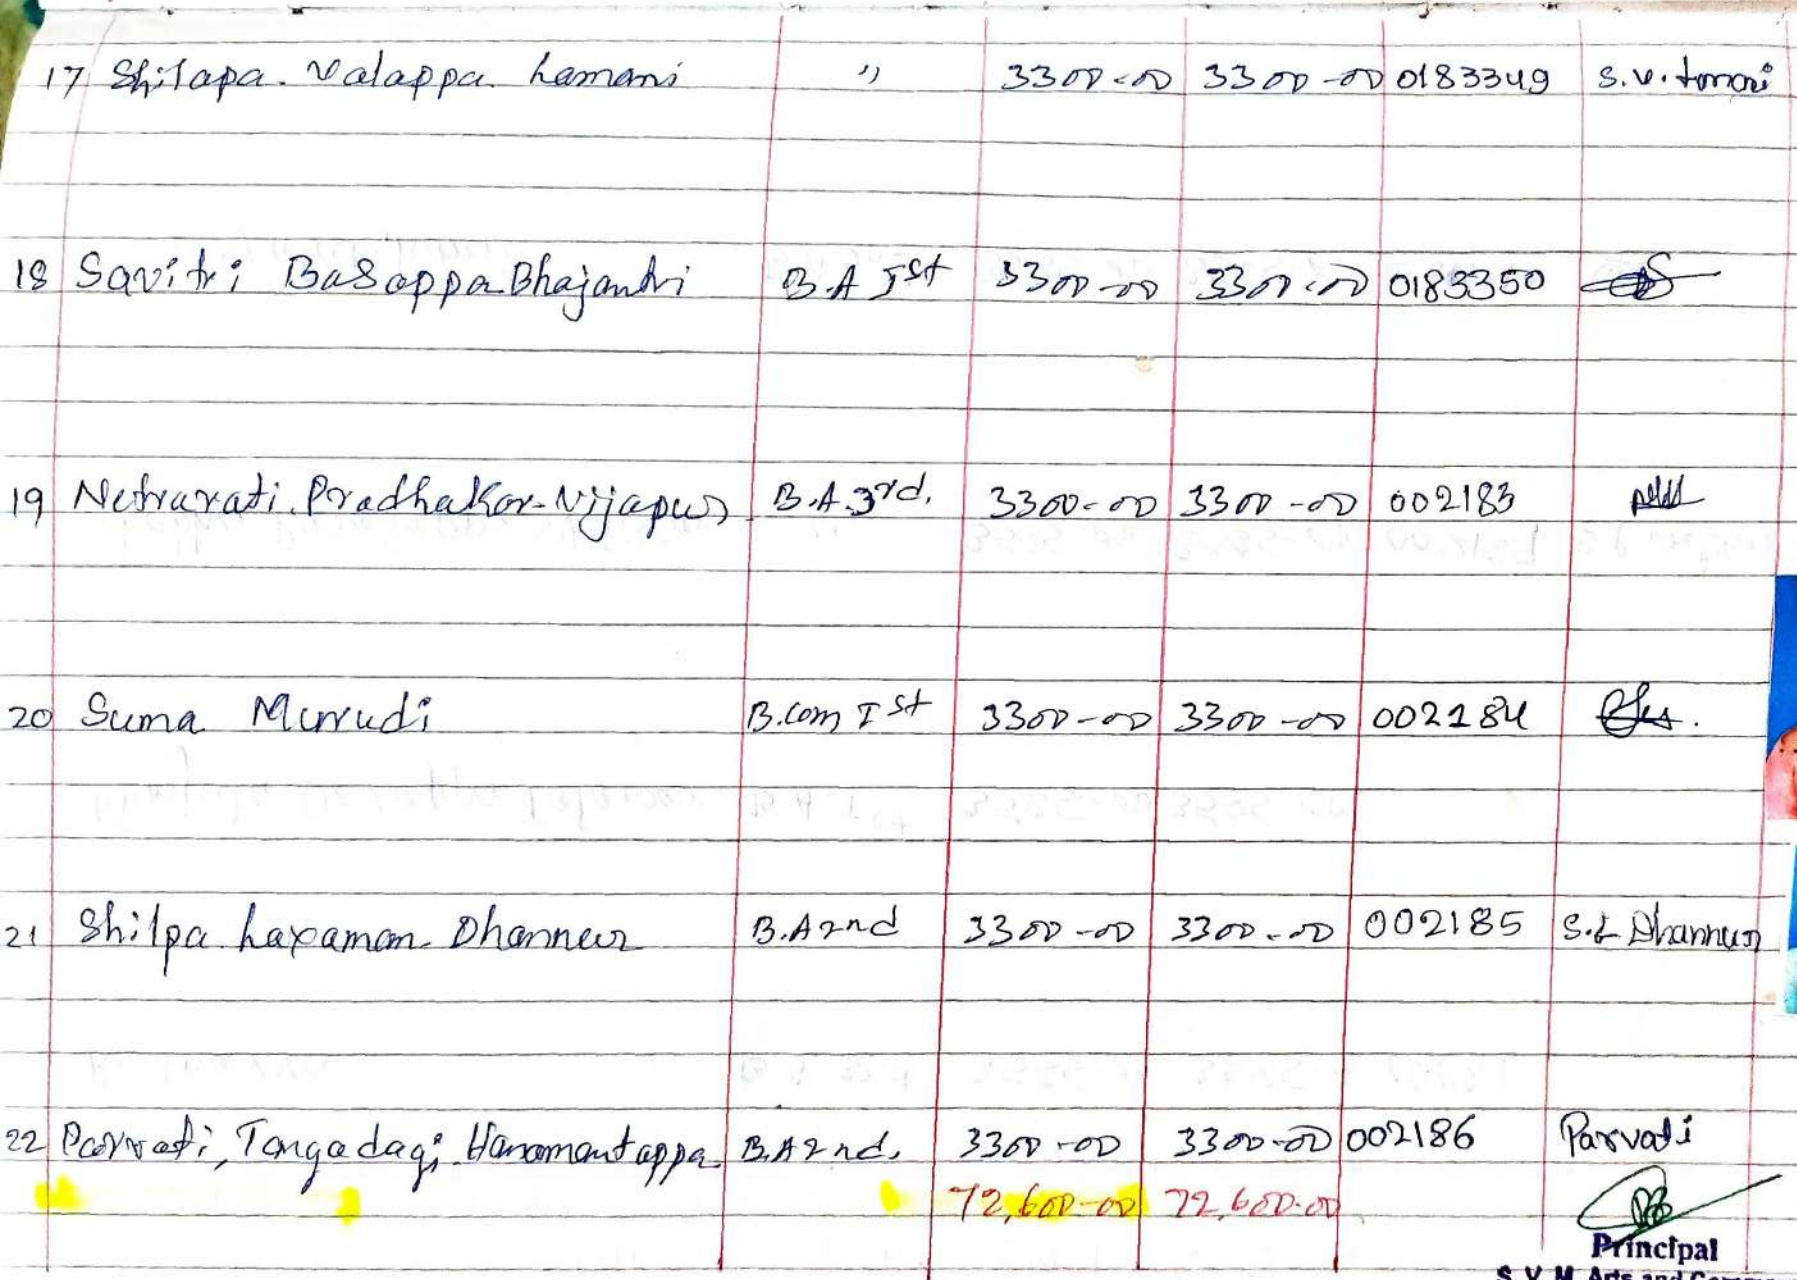 17 Shilapa. Valappa. Lamani " 3300-00 3300-00 0183349 S.V. Lamani
18 Savitri Basappa Bhajantri B.A Ist 3300-00 3300-00 0183350
19 Netravati. Pradhakar. Vijapur B.A.3rd. 3300-00 3300-00 002183
20 Suma Murudi B.com Ist 3300-00 3300-00 002184
21 Shilpa. Laxaman. Dhannur B.A 2nd 3300-00 3300-00 002185 S.L Dhannur
22 Parvati, Tangadagi Hanamantappa B.A 2nd. 3300-00 3300-00 002186 Parvati
72,600-00 72,600-00
Principal
S. V. M. Arts and